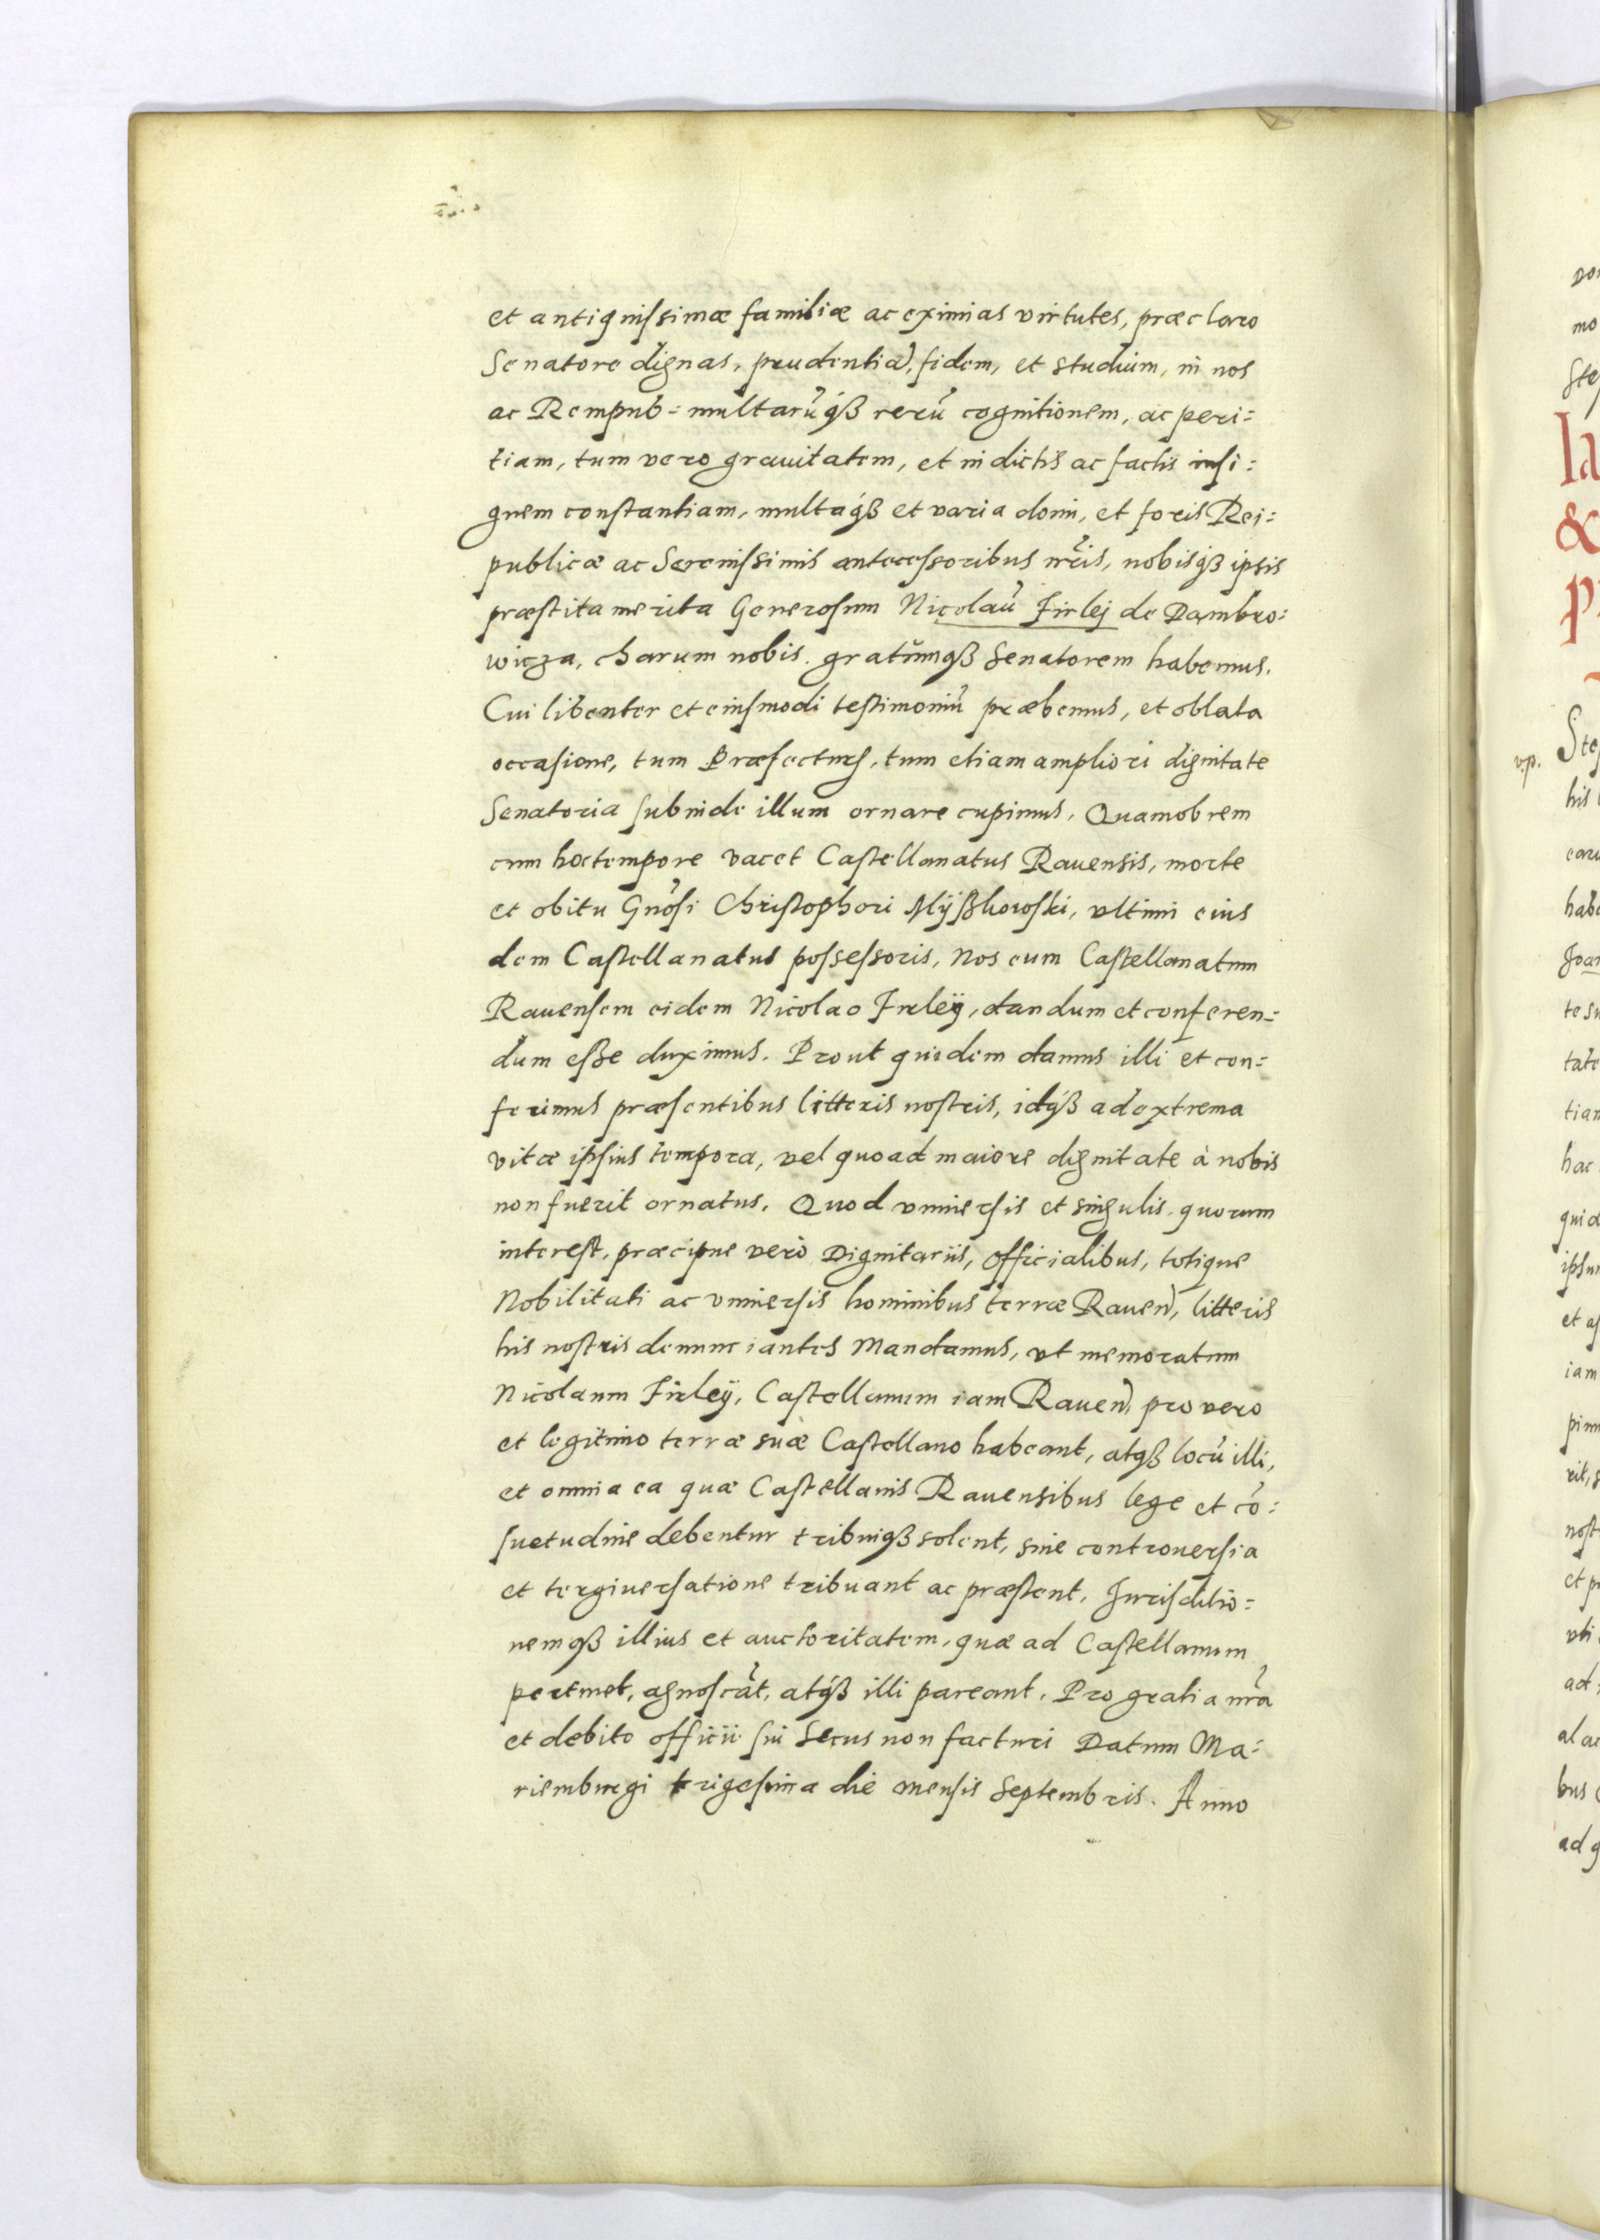 et antiquissimæ familiæ ac eximias virtutes, præclaro
Senatore dignas, prudentiã, fidem, et studium, in nos
ac Rempub= multarũq́ꝫ rerũ cognitionem, ac peri=
tiam, tum vero grauitatem, et in dictis ac factis insi=
gnem constantiam, multaq́ꝫ et varia domi, et foris Rei=
publicæ ac Serenissimis antecessoribus nr̃is, nobisqꝫ ipsis
præstita merita Generosum Nicolaũ Firlej de Dambro=
wicza, charum nobis gratumqꝫ Senatorem habemus.
Cui libenter et eiusmodi testimoniũ præbemus, et oblata
occasione, tum Præfectures, tum etiam ampliori dignitate
Senatoria subinde illum ornare cupimus. Quamobrem
cum hoc tempore vacet Castellanatus Rauensis, morte
et obitu Gnõsi Christophori Myßkowski, vltimi eius
dem Castellanatus possessoris, Nos eum Castellanatum
Rauensem eidem Nicolao Firleÿ, dandum et conferen=
dum eße duximus. Prout quidem damus illi et con=
ferimus præsentibus litteris nostris, idq́ꝫ ad extrema
vitæ ipsius tempora, vel quoad maiore dignitate à nobis
non fuerit ornatus. Quod vniuersis et singulis quorum
interest, præcipue verò Dignitariis, officialibus, totique
Nobilitati ac vniuersis hominibus terræ Rauen̄, litteris
his nostris denunciantes Mandamus, vt memoratum
Nicolaum Firleÿ, Castellanum iam Rauen̄, pro vero
et legitimo terræ suæ Castellano habeant, atqꝫ locũ illi,
et omnia ea quæ Castellanis Rauensibus lege et cõ=
suetudine debentur tribuiqꝫ solent, sine controuersia
et tergiuersatione tribuant ac præstent. Jurisditio=
nemqꝫ illius et auctoritatem, quæ ad Castellanum
pertinet, agnoscãt, atq́ꝫ illi pareant. Pro gratia nr̃a
et debito officii sui Secus non facturi Datum Ma=
riemburgi trigesima die mensis Septembris. Anno
v.p.